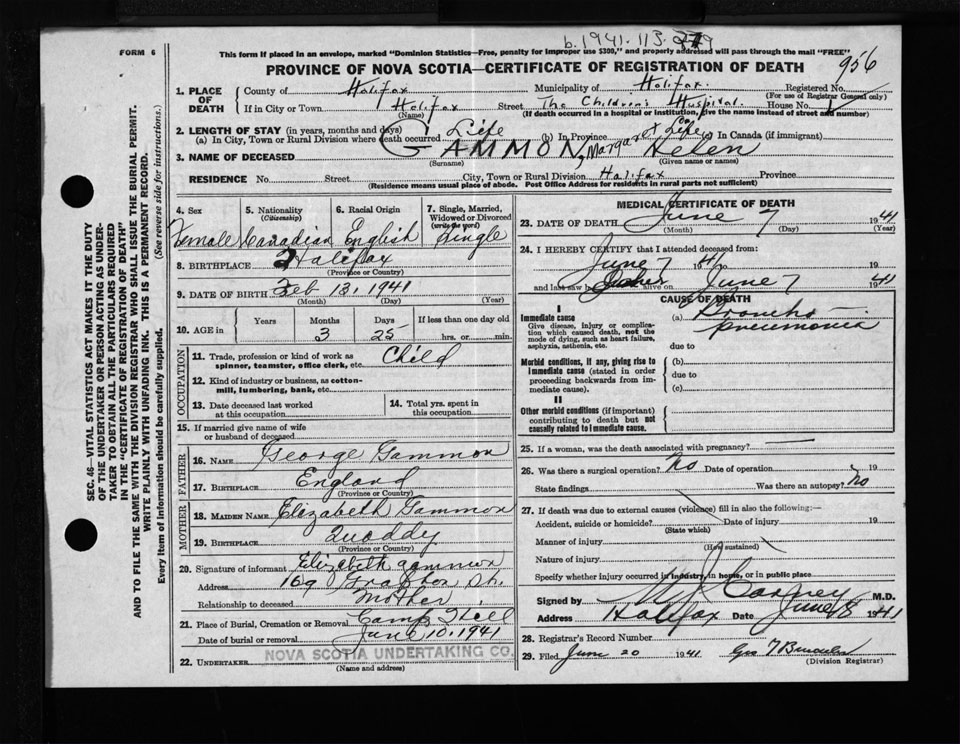 b. 1941. 113.
FORM 6
This form if placed in an envelope, marked "Dominion Statistics—Free, penalty for improper use $300," and properly addressed will pass through the mail "FREE"
PROVINCE OF NOVA SCOTIA—CERTIFICATE OF REGISTRATION OF DEATH
956
1. PLACE OF DEATH
County of Halifax Municipality of Halifax Registered No.
(For use of Registrar General only)
If in City or Town Halifax Street The Children's Hospital House No.
(Name) (If death occurred in a hospital or institution, give the name instead of street and number)
2. LENGTH OF STAY (in years, months and days)
(a) In City, Town or Rural Division where death occurred Life (b) In Province Life (c) In Canada (if immigrant)
3. NAME OF DECEASED GAMMON, Margaret Helen
(Surname) (Given name or names)
RESIDENCE No. Street City, Town or Rural Division Halifax Province
(Residence means usual place of abode. Post Office Address for residents in rural parts not sufficient)
4. Sex Female
5. Nationality (Citizenship) Canadian
6. Racial Origin English
7. Single, Married, Widowed or Divorced (write the word) Single
8. BIRTHPLACE Halifax
(Province or Country)
9. DATE OF BIRTH Feb 13, 1941
(Month) (Day) (Year)
10. AGE in Years Months Days If less than one day old
3 25 hrs. or min.
OCCUPATION
11. Trade, profession or kind of work as spinner, teamster, office clerk, etc. Child
12. Kind of industry or business, as cotton-mill, lumbering, bank, etc.
13. Date deceased last worked at this occupation
14. Total yrs. spent in this occupation
15. If married give name of wife or husband of deceased
FATHER
16. NAME George Gammon
17. BIRTHPLACE England
(Province or Country)
MOTHER
18. MAIDEN NAME Elizabeth Gammon
19. BIRTHPLACE Quoddy
(Province or Country)
20. Signature of informant Elizabeth gammon
Address 169 Grafton St.
Relationship to deceased Mother
21. Place of Burial, Cremation or Removal Camp Hill
Date of burial or removal June 10, 1941
22. UNDERTAKER NOVA SCOTIA UNDERTAKING CO.
(Name and address)
MEDICAL CERTIFICATE OF DEATH
23. DATE OF DEATH June 7 1941
(Month) (Day) (Year)
24. I HEREBY CERTIFY that I attended deceased from:
June 7 1941
and last saw her alive on June 7 1941
CAUSE OF DEATH
I
Immediate cause
Give disease, injury or complication which caused death, not the mode of dying, such as heart failure, asphyxia, asthenia, etc.
(a) Broncho pneumonia
due to
Morbid conditions, if any, giving rise to immediate cause (stated in order proceeding backwards from immediate cause).
(b)
due to
(c)
II
Other morbid conditions (if important) contributing to death but not causally related to immediate cause.
25. If a woman, was the death associated with pregnancy?
26. Was there a surgical operation? No Date of operation 19
State findings Was there an autopsy? No
27. If death was due to external causes (violence) fill in also the following:—
Accident, suicide or homicide? Date of injury 19
(State which)
Manner of injury
(How sustained)
Nature of injury
Specify whether injury occurred in industry, in home, or in public place
Signed by Carney M.D.
Address Halifax Date June 8 1941
28. Registrar's Record Number
29. Filed June 20 1941
(Division Registrar)
SEC. 46—VITAL STATISTICS ACT MAKES IT THE DUTY
OF THE UNDERTAKER OR PERSON ACTING AS UNDER-
TAKER TO OBTAIN ALL THE PARTICULARS REQUIRED
IN THE "CERTIFICATE OF REGISTRATION OF DEATH"
AND TO FILE THE SAME WITH THE DIVISION REGISTRAR WHO SHALL ISSUE THE BURIAL PERMIT.
WRITE PLAINLY WITH UNFADING INK. THIS IS A PERMANENT RECORD.
Every item of information should be carefully supplied. (See reverse side for instructions.)